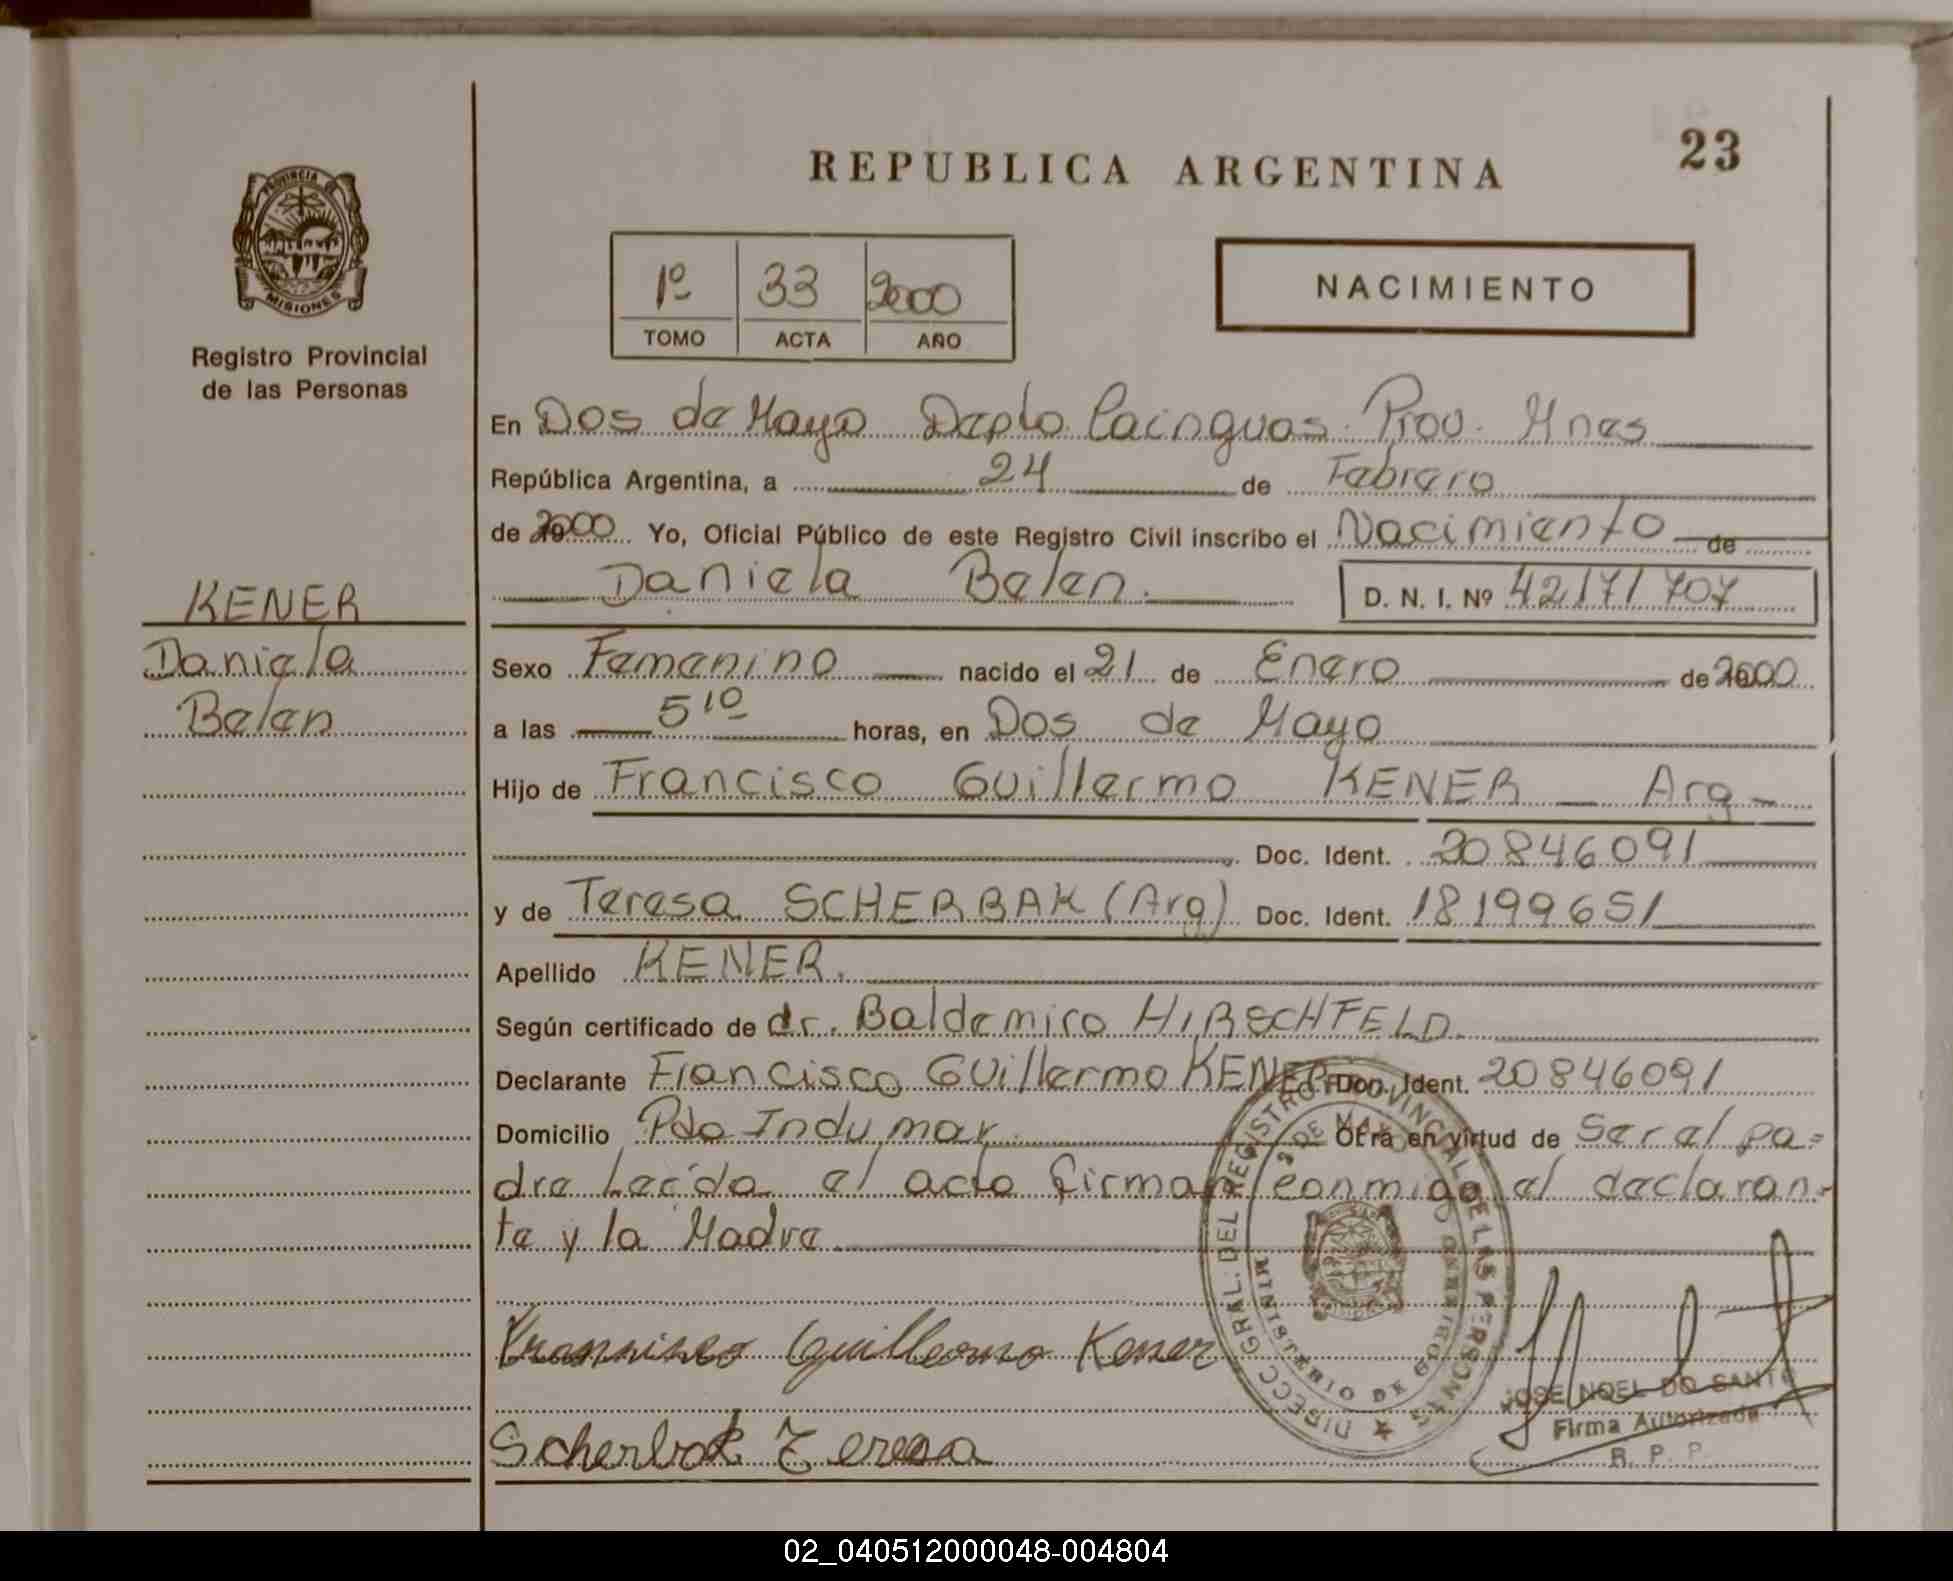 REPUBLICA ARGENTINA
23
PROVINCIA DE
MISIONES
Registro Provincial
de las Personas
1º 33 2000
TOMO ACTA AÑO
NACIMIENTO
En Dos de Mayo Depto Cainguas. Prov. Mnes
República Argentina, a 24 de Febrero
de 2000 Yo, Oficial Público de este Registro Civil inscribo el Nacimiento de
Daniela Belen. D. N. I. Nº 42171707
KENER
Daniela
Belen
Sexo Femenino nacido el 21 de Enero de 2000
a las 5 10 horas, en Dos de Mayo
Hijo de Francisco Guillermo KENER - Arg -
Doc. Ident. 20846091
y de Teresa SCHERBAK (Arg) Doc. Ident. 18199651
Apellido KENER.
Según certificado de dr. Baldemiro HIRSCHFELD.
Declarante Francisco Guillermo KENER Doc. Ident. 20846091
Domicilio Pdo Indumar Obra en virtud de Ser el pa=
dre Leída el acta firman conmigo el declaran-
te y la Madre
DIRECC. GRAL. DEL REGISTRO PROVINCIAL DE LAS PERSONAS
2 DE MAYO
MINISTERIO DE GOBIERNO
Francisco Guillermo Kener
JOSE NOEL DO SANTO
Firma Autorizada
R. P. P.
Scherbak Teresa
02_040512000048-004804